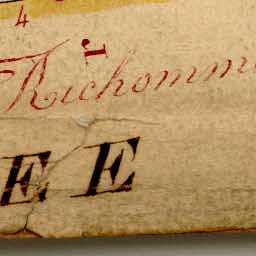 4
r
Richomm
E E